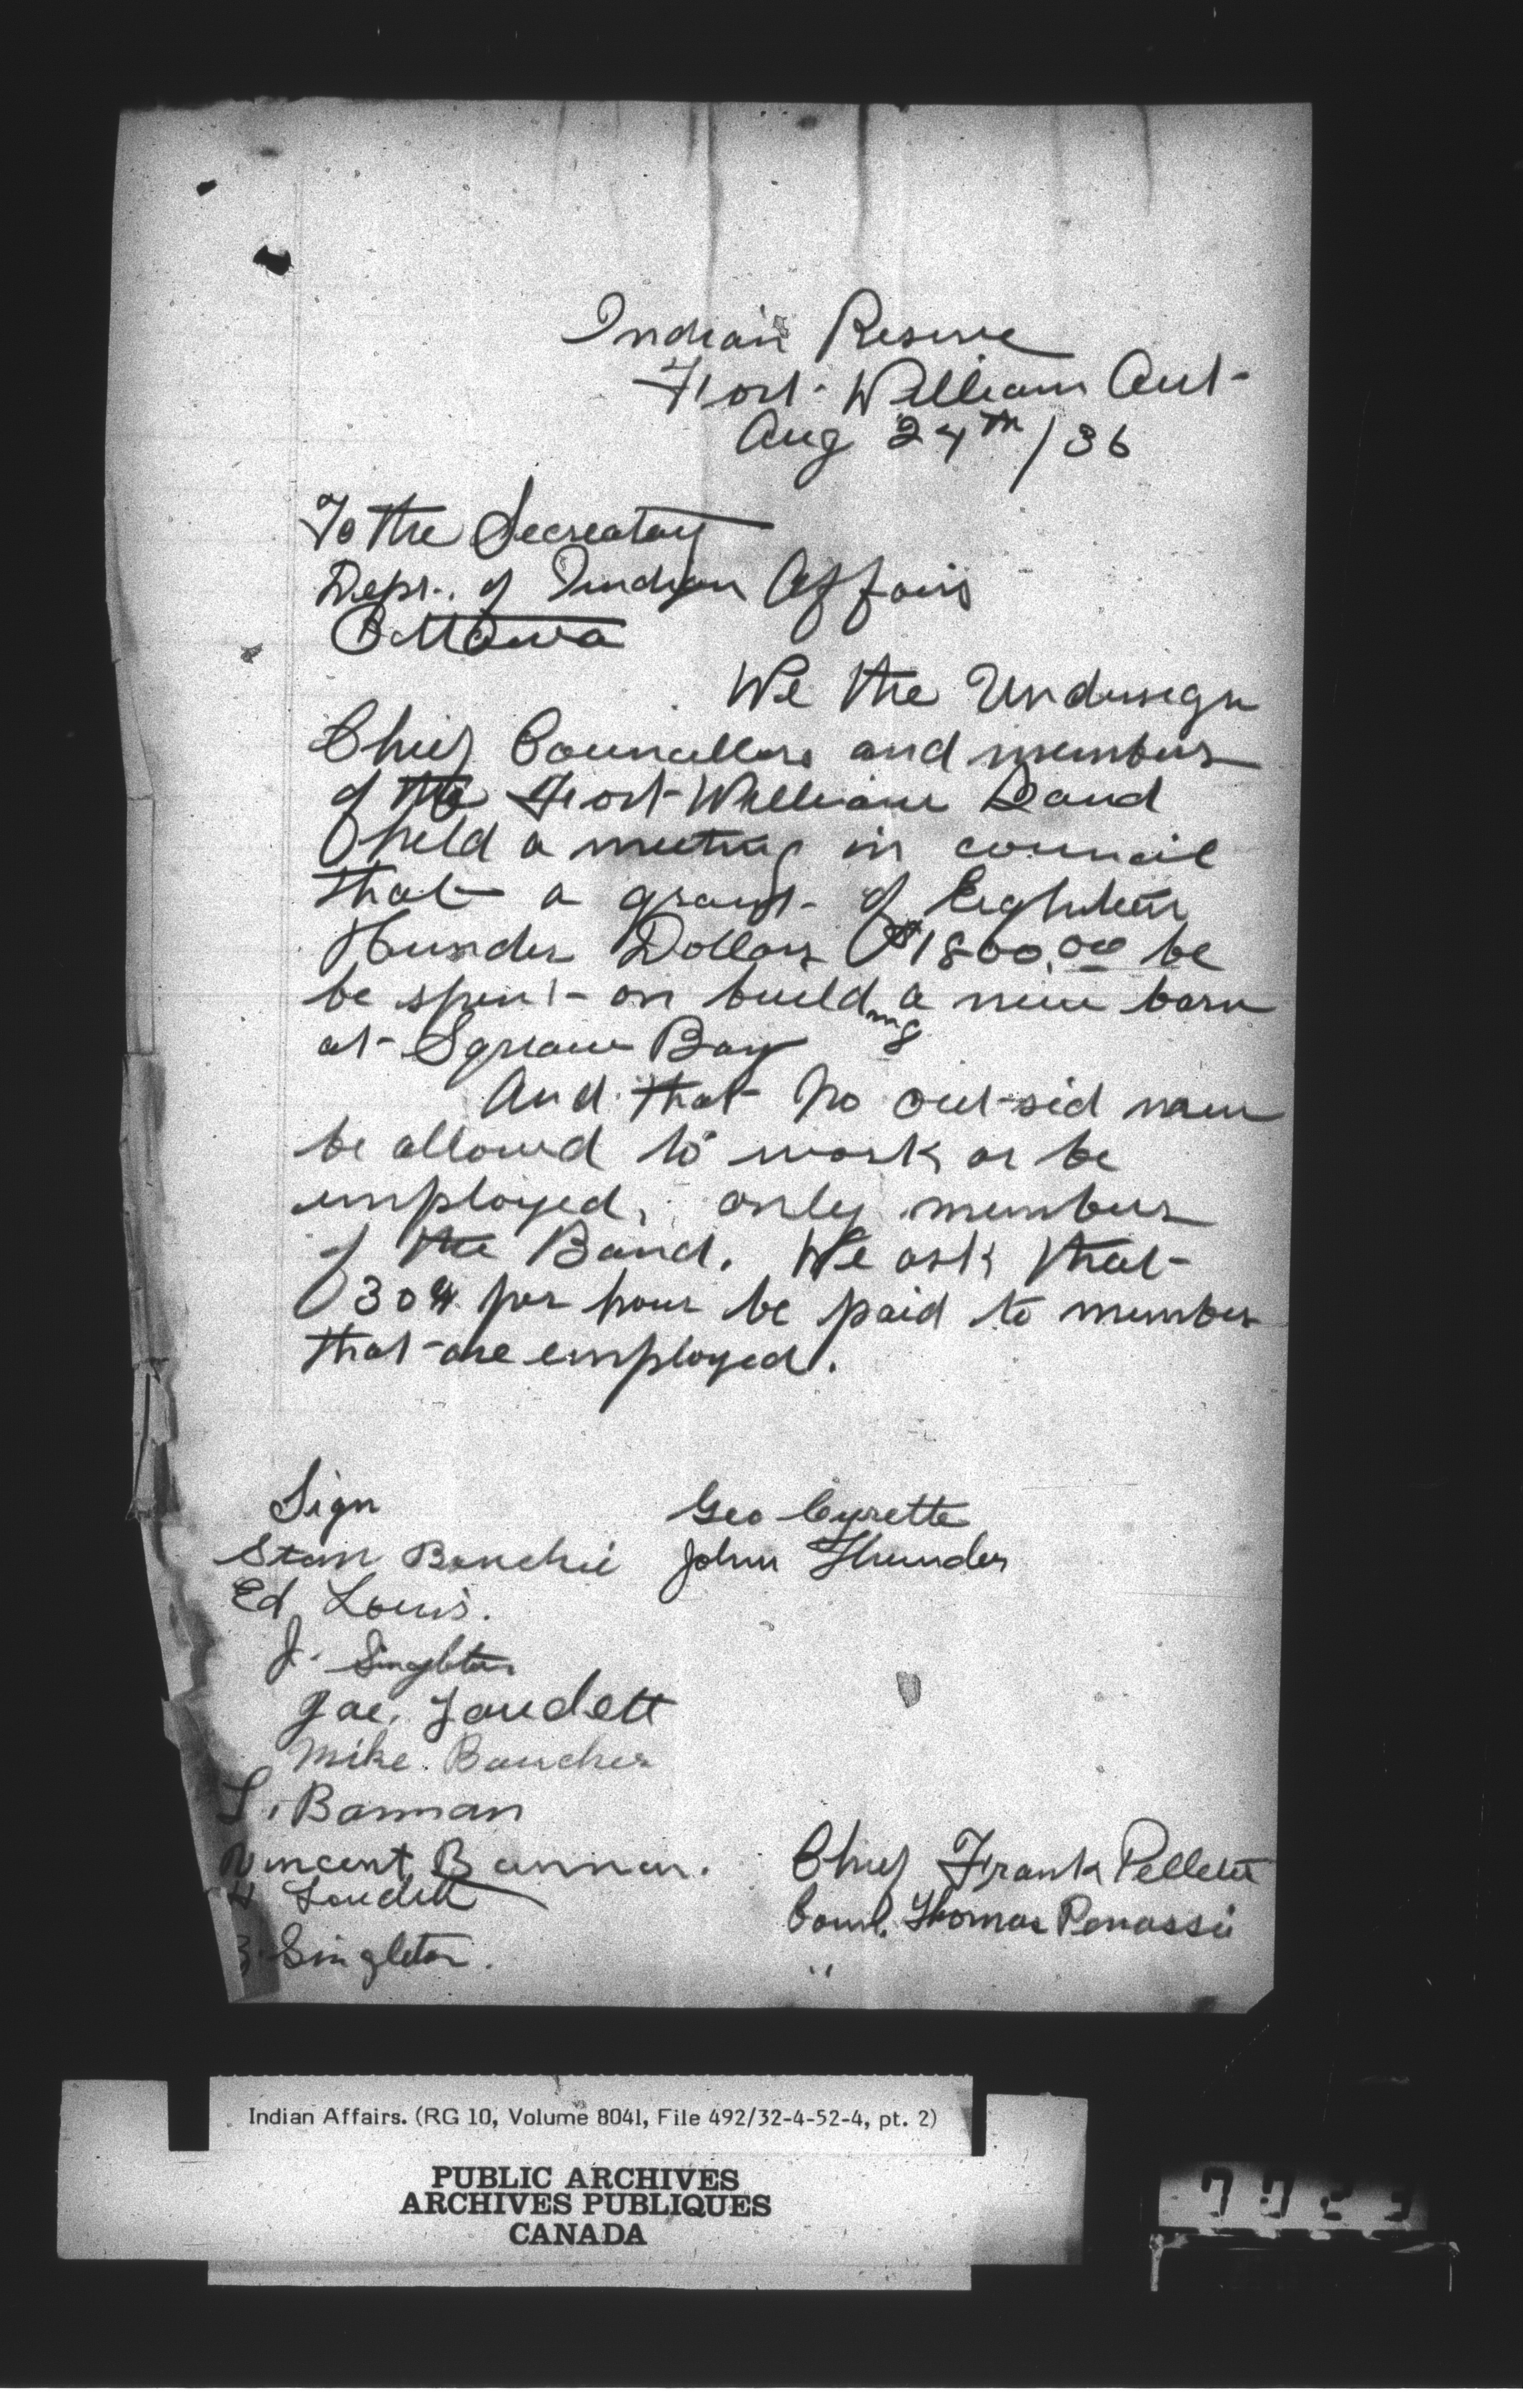 Indian Reserve
Fort William Ont
Aug 24th / 36
To the Secreatary
Dept. of Indian Affairs
Ottawa
We the Undersign
Chief Councellors and members
of the Fort William Band
held a meeting in council
that a grant of Eighteen
Hunder Dollars $1800.00 be
be spent on building a new barn
at Squaw Bay
And that no out-sid man
be allowed to work or be
employed, only members
of the Band. We ask that
30¢ per hour be paid to member
that are employed.
Sign
Geo Cyrette
Stan Bouchie
John Thunder
Ed Louis.
J. Singleton
Joe. Gaudett
Mike. Boucher
L. Bannan
Vincent Bannan.
Chief Frank Pelletier
H Gaudett
Coun. Thomas Penassie
Singleton.
"
Indian Affairs. (RG 10, Volume 8041, File 492/32-4-52-4, pt. 2)
PUBLIC ARCHIVES
ARCHIVES PUBLIQUES
CANADA